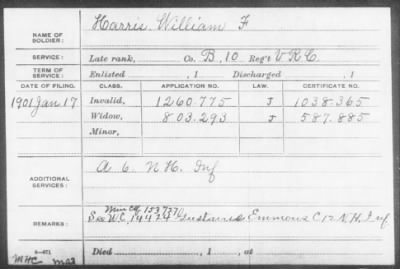 NAME OF SOLDIER: Harris, William F
SERVICE: Late rank, Co. B, 10 Reg't V.R.C.
TERM OF SERVICE: Enlisted , 1 Discharged , 1
DATE OF FILING. CLASS. APPLICATION NO. LAW. CERTIFICATE NO.
1901 Jan 17 Invalid, 1260.775 J 1038.365
Widow, 803.293 J 587.885
Minor,
ADDITIONAL SERVICES: A 6 N.H. Inf
Min Ctf 153737
REMARKS: See W.C. Emmons C 12 N.H. Inf
Died , 1 , at